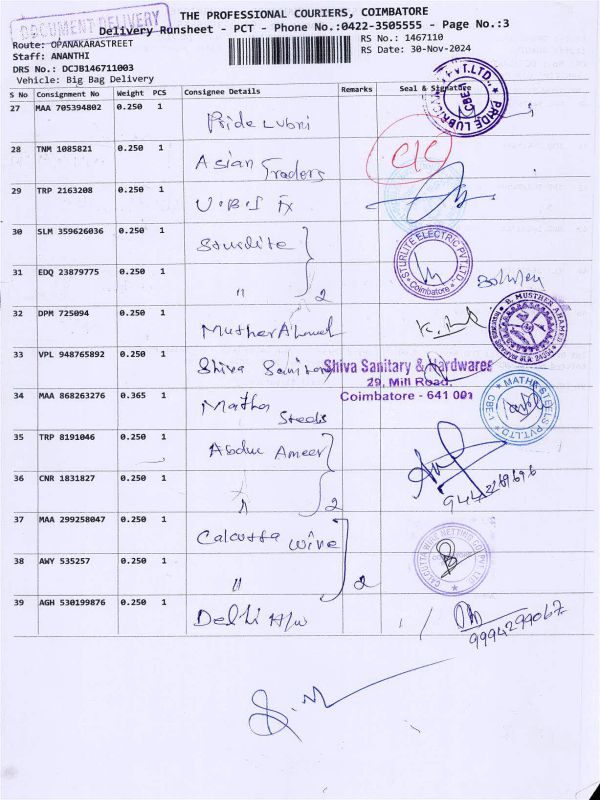 DOCUMENT DELIVERY
THE PROFESSIONAL COURIERS, COIMBATORE
Delivery Runsheet - PCT - Phone No.:0422-3505555 - Page No.:3
Route: OPANAKARASTREET
Staff: ANANTHI
DRS No.: DCJB146711003
Vehicle: Big Bag Delivery
RS No.: 1467110
RS Date: 30-Nov-2024
S No Consignment No Weight PCS Consignee Details Remarks Seal & Signature
27 MAA 705394802 0.250 1 Pride Lubri
PRIDE LUBRICANTS PVT.LTD. CBE
28 TNM 1085821 0.250 1 Asian Traders
29 TRP 2163208 0.250 1 U.B.I Fx
30 SLM 359626036 0.250 1 Sturlite
STURLITE ELECTRIC PVT LTD Coimbatore
31 EDQ 23879775 0.250 1 " 2
32 DPM 725094 0.250 1 Muther Ahmed
B. MUSTHER AHAMED
33 VPL 948765892 0.250 1 Shiva Sanitary
Shiva Sanitary & Hardwares
29, Mill Road,
Coimbatore - 641 001
34 MAA 868263276 0.365 1 Matha Steels
MATHA STEELS PVT.LTD. CBE-1
35 TRP 8191046 0.250 1 Abdul Ameer
36 CNR 1831827 0.250 1 " 2
37 MAA 299258047 0.250 1 Calcutta Wire
CALCUTTA WIRE NETTING CO PVT LTD
38 AWY 535257 0.250 1 " 2
39 AGH 530199876 0.250 1 Delhi H/w
9994299067